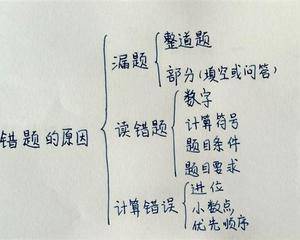 错题的原因
漏题
整道题
部分(填空或问答)
读错题
数字
计算符号
题目条件
题目要求
计算错误
进位
小数点
优先顺序